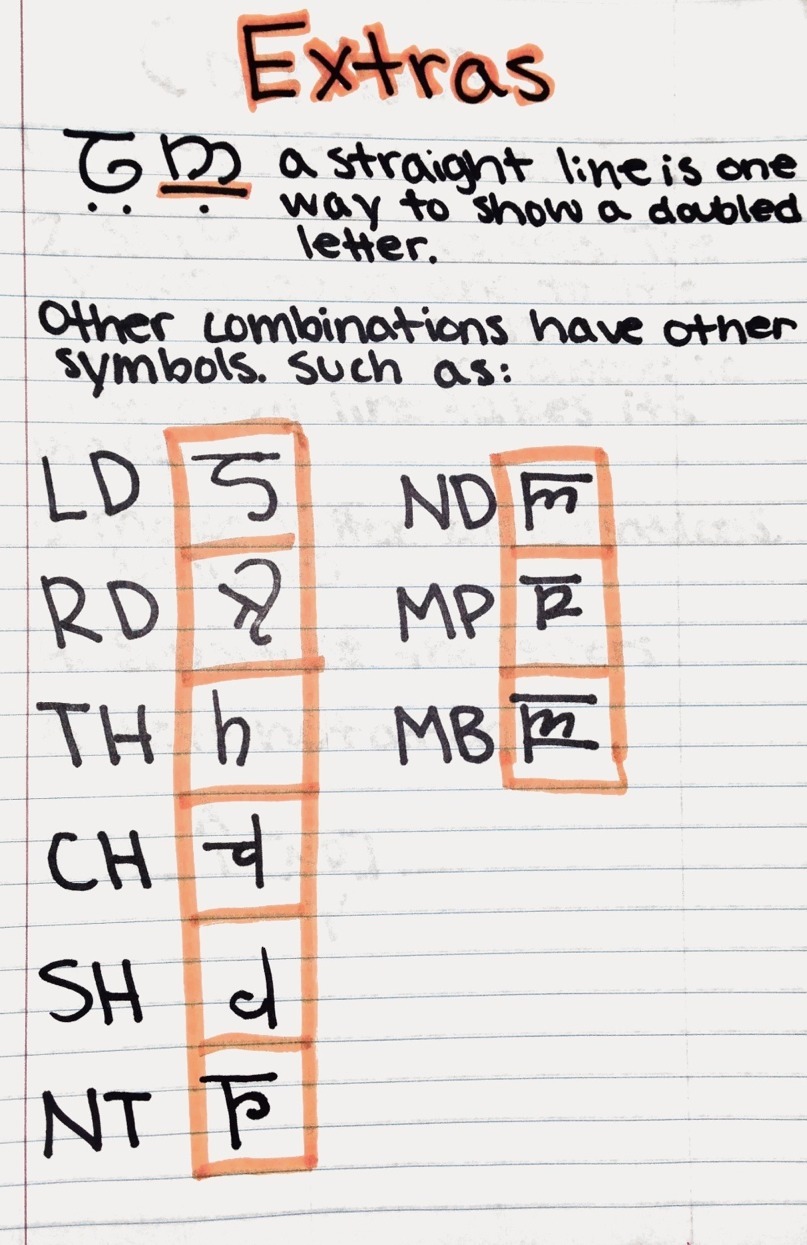 Extras
a straight line is one
way to show a doubled
letter.
Other combinations have other
symbols. Such as:
LD
RD
TH
CH
SH
NT
ND
MP
MB